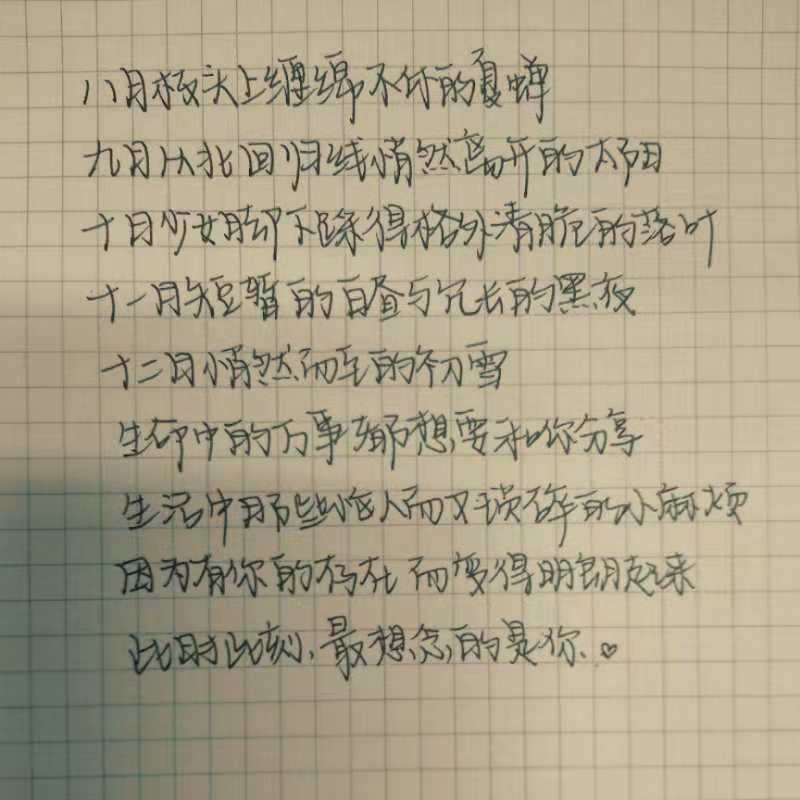 八月枝头上缠绵不休的夏蝉
九月从北回归线悄然离开的太阳
十月少女脚下踩得格外清脆的落叶
十一月短暂的白昼与冗长的黑夜
十二月悄然而至的初雪
生命中的万事都想要和你分享
生活中那些恼人而又琐碎的小麻烦
因为有你的存在而变得明朗起来
此时此刻,最想念的是你.♡